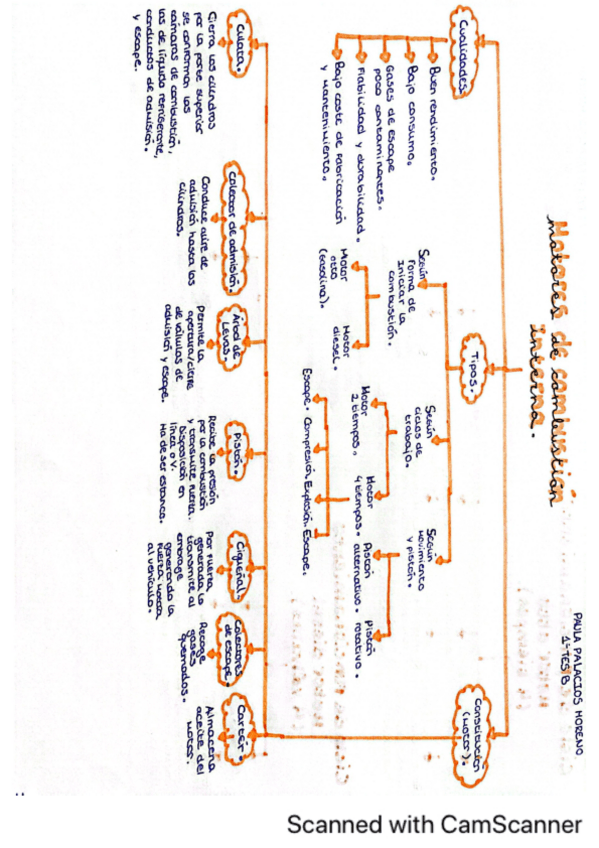 PAULA PALACIOS MORENO.
1º TES B
Motores de combustión
interna.
Cualidades.
Buen rendimiento.
Bajo consumo.
Gases de escape
poco contaminantes.
Fiabilidad y durabilidad.
Bajo coste de fabricación
y mantenimiento.
Tipos.
Según
forma de
iniciar la
combustión.
Motor
otto
(gasolina).
Motor
diesel.
Según
ciclos de
trabajo.
Motor
2 tiempos.
Motor
4 tiempos.
Escape.
Compresión.
Explosión.
Escape.
Según
movimiento
y pistón.
Pistón
alternativo.
Pistón
rotativo.
Constitución
(motor).
Culata.
Cierra los cilindros
por la parte superior
se conforman las
cámaras de combustión,
las de líquido refrigerante,
conductos de admisión
y escape.
Colector de admisión.
Conduce aire de
admisión hasta los
cilindros.
Árbol de
Levas.
Permite la
apertura/cierre
de válvulas de
admisión y escape.
Pistón.
Recibe la presión
por la combustión
y transmite fuerza.
Disposición en
línea o V.
Ha de ser estanca.
Cigüeñal.
Por fuerza
generada lo
transmite al
embrague
generando la
fuerza motora
al vehículo.
Colectores
de escape.
Recoge
gases
quemados.
Carter.
Almacena
aceite del
motor.
Scanned with CamScanner